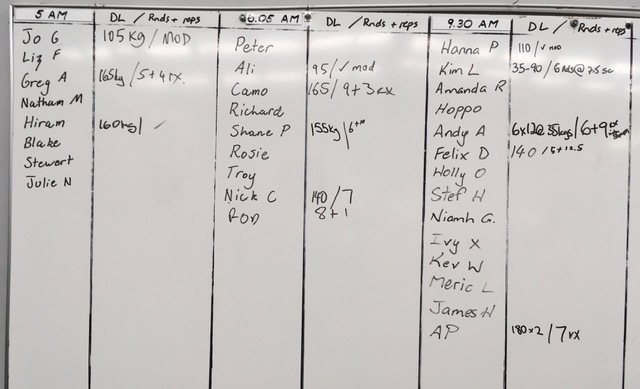 5 AM DL / Rnds + reps 6.05 AM DL / Rnds + reps 9.30 AM DL / Rnds + reps
Jo G 105 kg / MOD
Liz F
Greg A 165kg / 5+4 rx.
Nathan M
Hiram 160kg /
Blake
Stewart
Julie N
Peter
Ali 95 / ✓ mod
Camo 165 / 9+3 rx
Richard
Shane P 155kg
Rosie
Troy
Nick C 140 / 7
ROD 8+1
Hanna P 110 / ✓ mod
Kim L 35-90 / 6 rds @
Amanda R
Hoppo
Andy A 6x12@ 35kgs / 6+9
Felix D 140 / 5+12.5
Holly O
Stef H
Niamh G.
Ivy X
Kev W
Meric L
James H
AP 180x2 / 7 rx